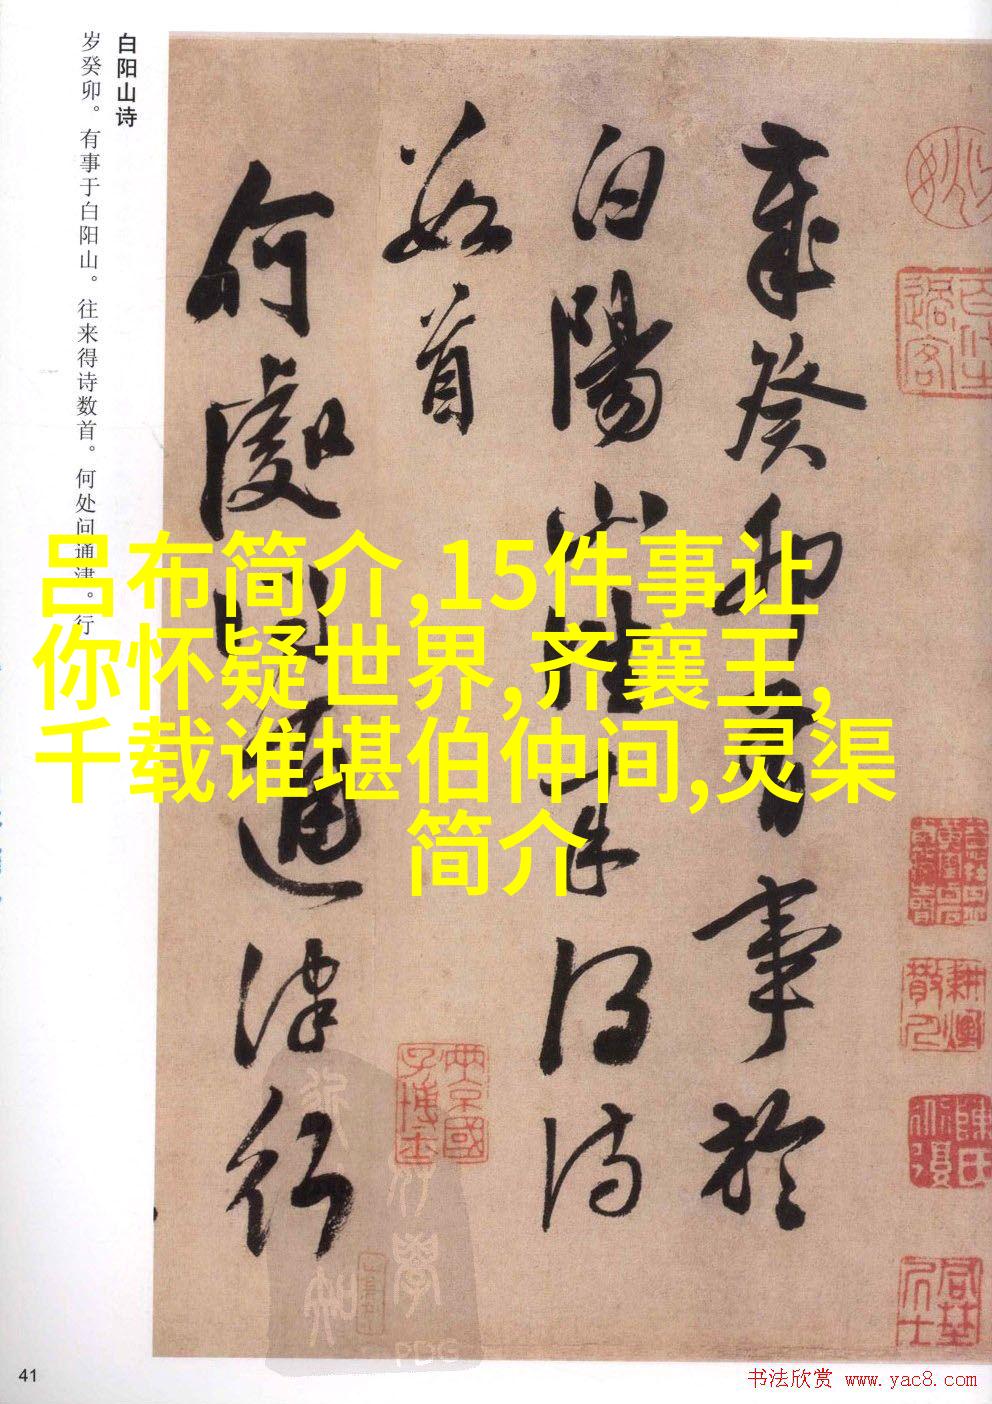 白阳山诗
岁癸卯。有事于白阳山。往来得诗数首。何处问通津。行
歲癸卯有事於
白陽山往来得诗
数首
何處问通津行
吕布简介,15件事让
你怀疑世界,齐襄王,
千载谁堪伯仲间,灵渠
简介
41
书法欣赏 www.yac8.com